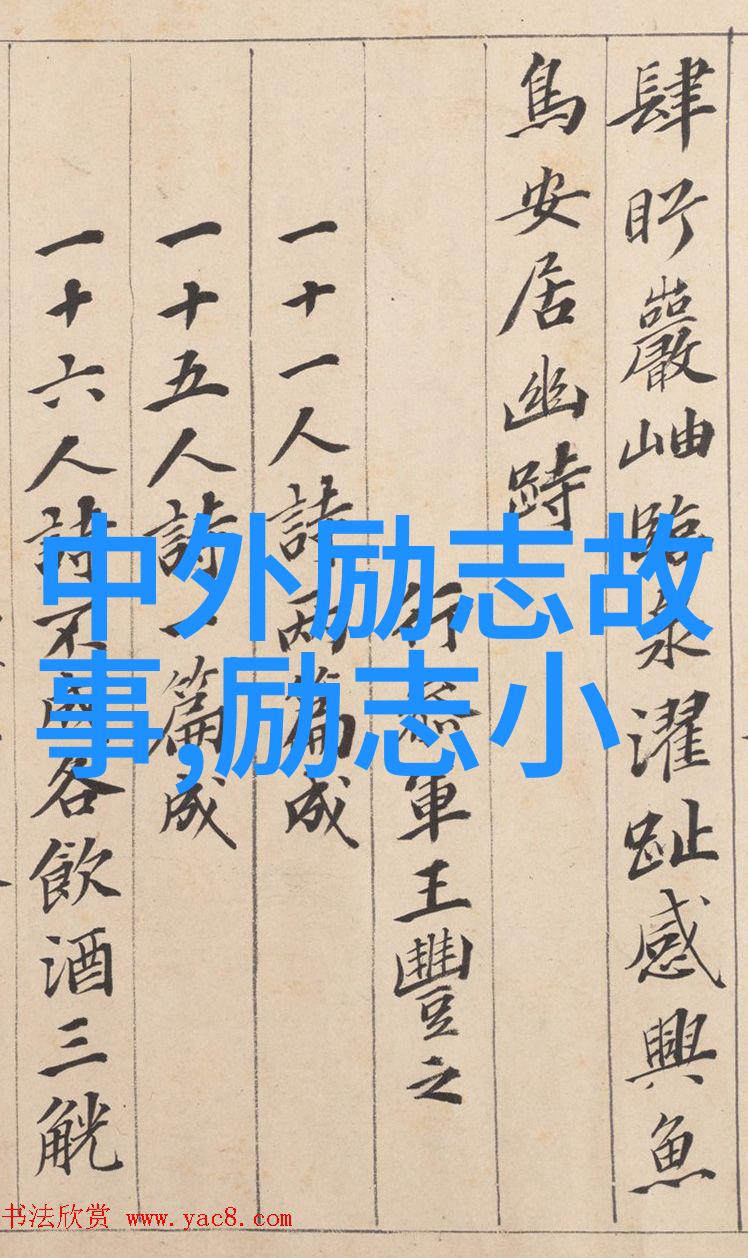 肆盻巖岫臨泉濯趾感興魚
鳥安居幽跱
行參軍王豐之
一十一人詩兩篇成
一十五人詩一篇成
一十六人詩不成各飲酒三觥
中外励志故
事,励志小
书法欣赏 www.yac8.com